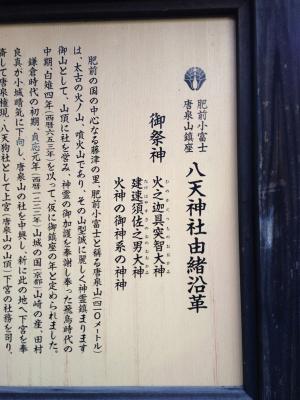 肥前小富士
唐泉山鎮座
八天神社由緒沿革
御祭神
火之迦具突智大神
建速須佐之男大神
火神の御神系の神神
肥前の国の中心なる藤津の里、肥前小富士と称る唐泉山(四一〇メートル)
は、太古の火ノ山、噴火山であり、その山型誠に麗しく神霊鎮まります
御山として、山頂に社を営み、神霊の御加護を奉謝し奉った飛鳥時代の
中期、白雉四年(西暦六五三年)を以って、仮に御鎮座の年と定められました。
鎌倉時代の初期、貞応元年(西暦一二二二年)山城の国(京都)山崎の産、田村
良真が小城晴気に下向し、唐泉山の社を中興し、新に此の地へ下宮を奉
斎して唐泉権現・八天狗社として上宮(唐泉山の山頂)下宮の社務を司り、